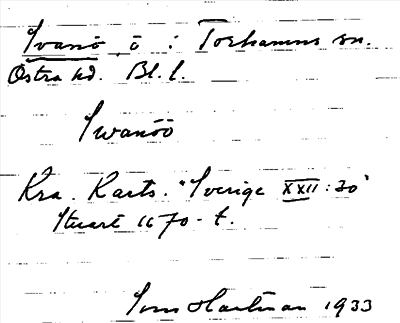 Ivanö ö i Torhamns sn.
Östra hd. Bl. l.
Iwanöö
Kra. Karts. "Sverige XXII:30"
Stuart 1670-t.
Tom Hartman 1933